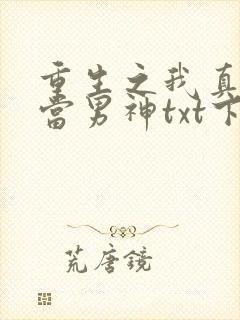 重生之我真
当男神txt下
荒唐镜